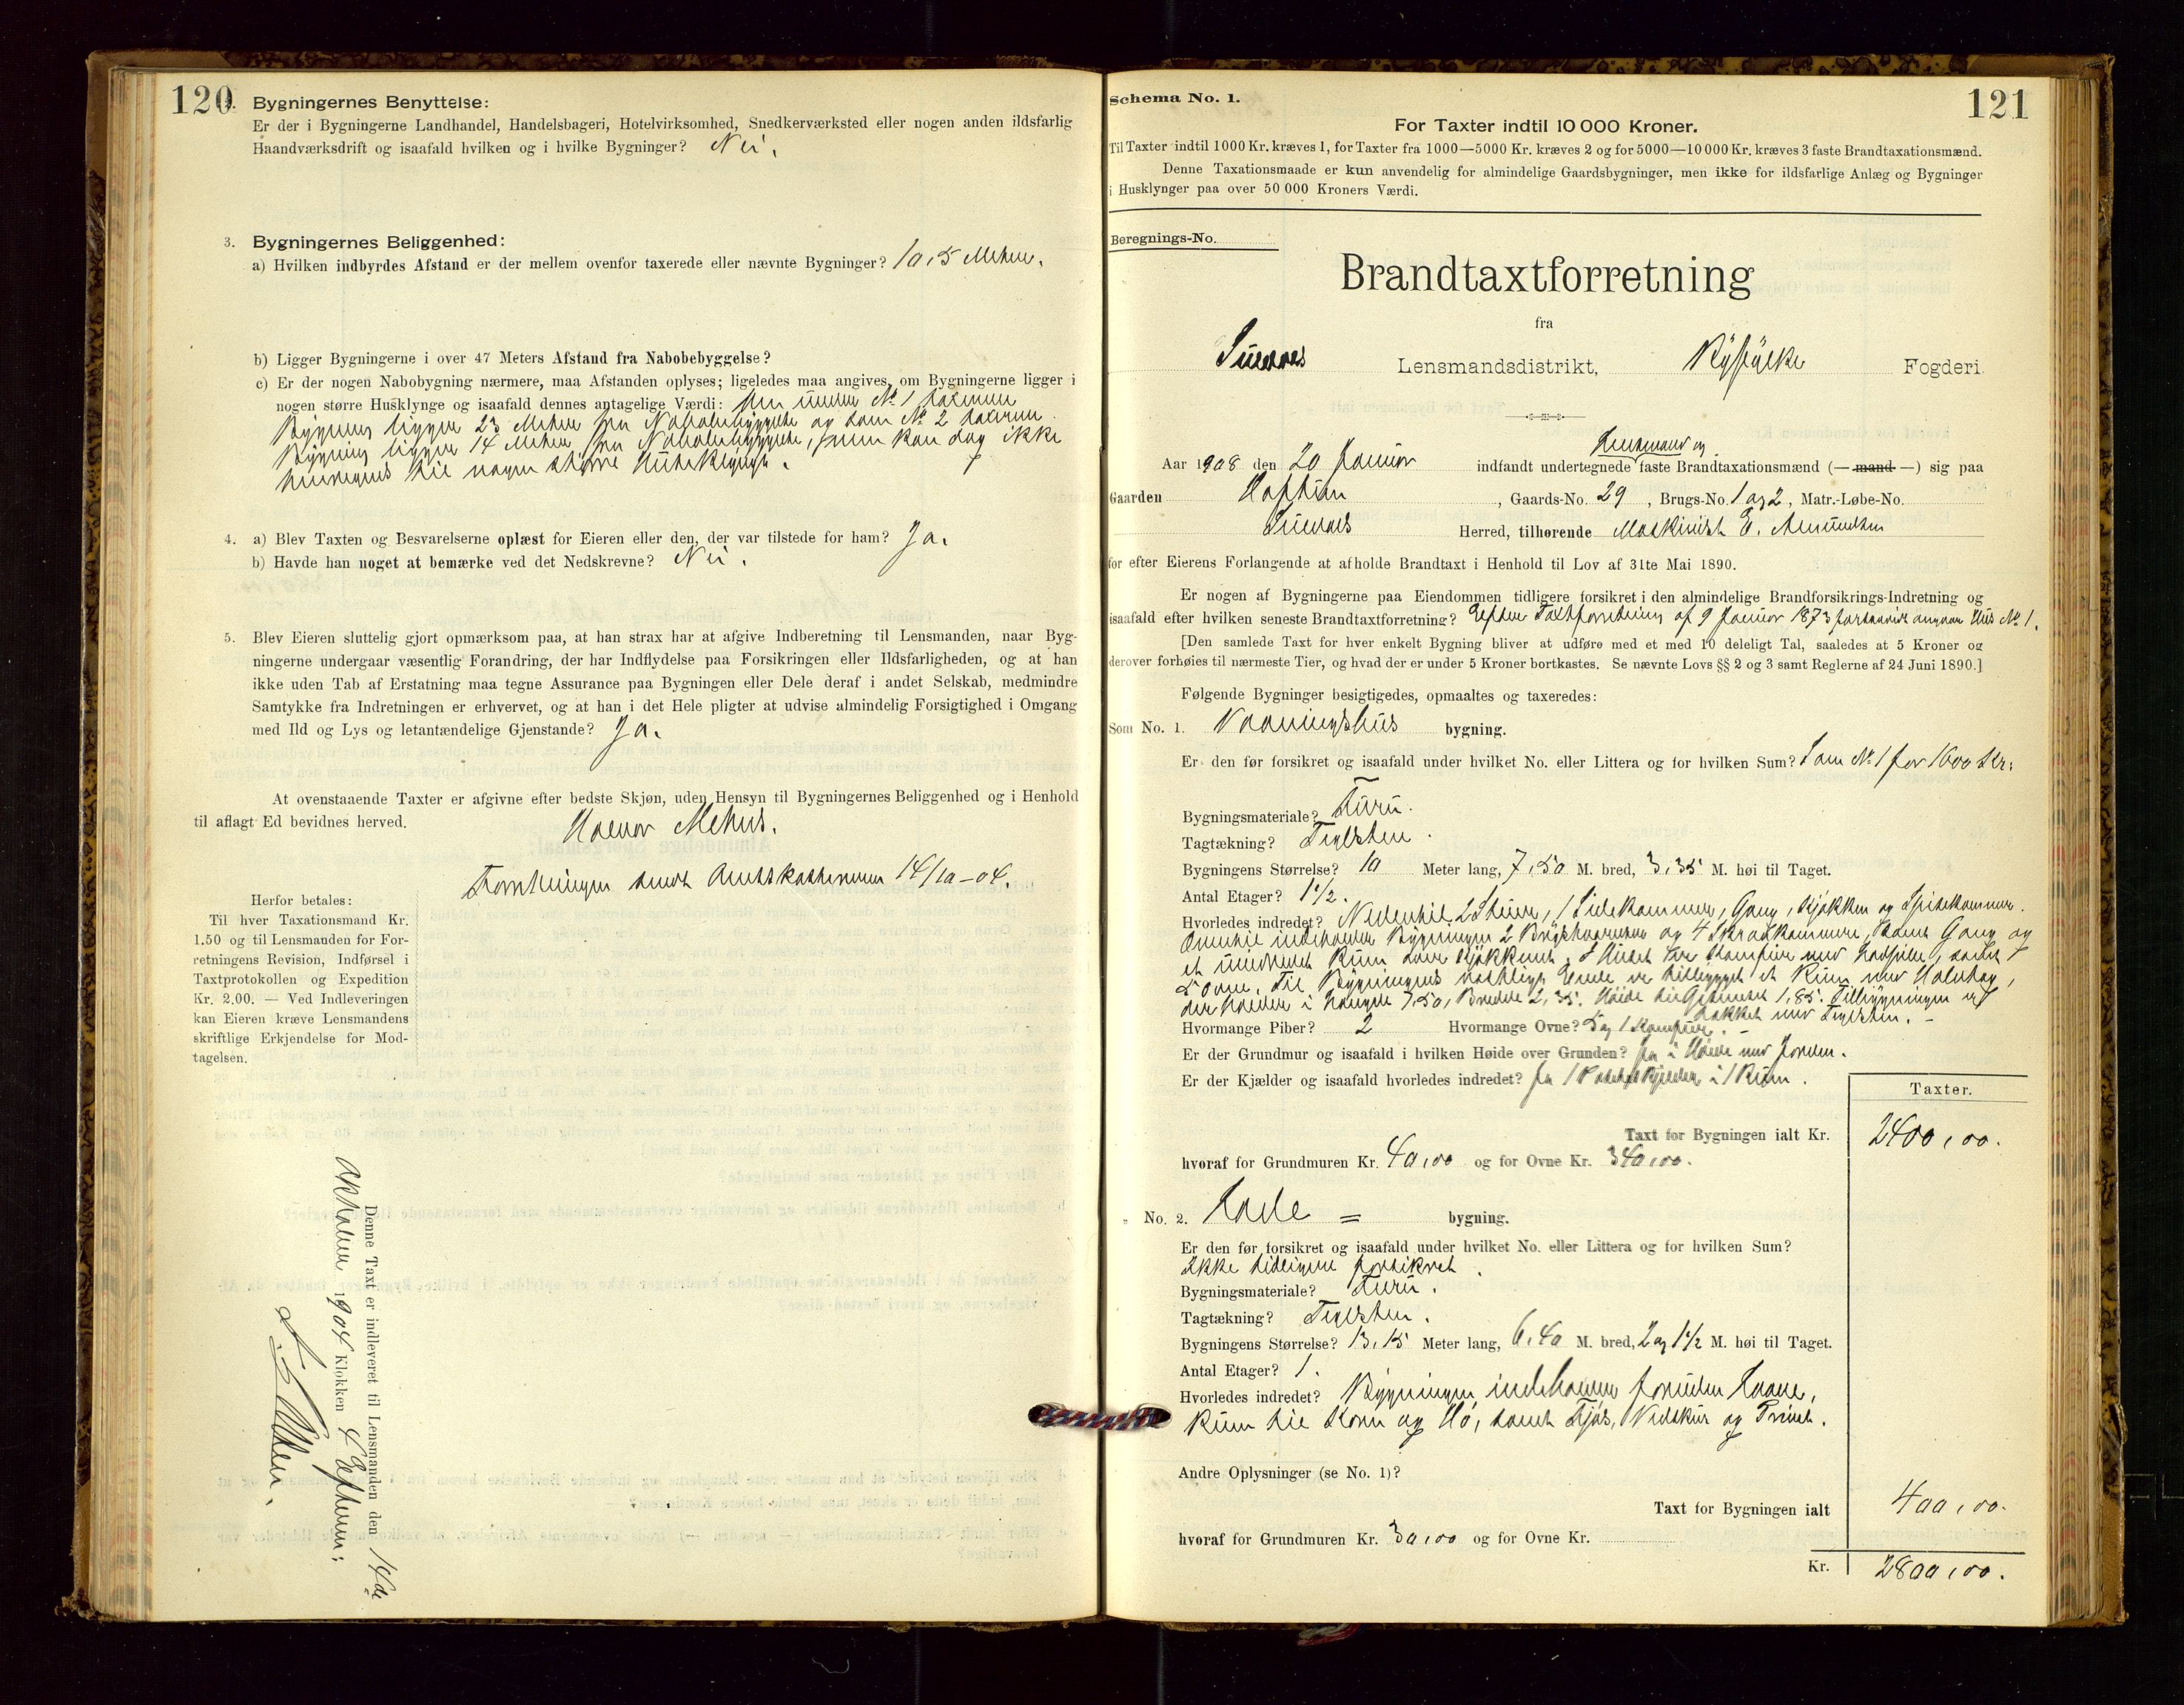 120
2. Bygningernes Benyttelse:
Er der i Bygningerne Landhandel, Handelsbageri, Hotelvirksomhed, Snedkerværksted eller nogen anden ildsfarlig
Haandværksdrift og isaafald hvilken og i hvilke Bygninger? Nei.
3. Bygningernes Beliggenhed:
a) Hvilken indbyrdes Afstand er der mellem ovenfor taxerede eller nævnte Bygninger? 10,5 Meter.
b) Ligger Bygningerne i over 47 Meters Afstand fra Nabobebyggelse?
c) Er der nogen Nabobygning nærmere, maa Afstanden oplyses; ligeledes maa angives, om Bygningerne ligger i
nogen større Husklynge og isaafald dennes antagelige Værdi: Den under No 1 taxerede
Bygning ligger 23 Meter fra Nabobebyggelse og den No 2 taxerede
Bygning ligger 14 Meter fra Nabobebyggelse, som kan dog ikke
henregnes til nogen større Husklynge.
4. a) Blev Taxten og Besvarelserne oplæst for Eieren eller den, der var tilstede for ham? Ja.
b) Havde han noget at bemærke ved det Nedskrevne? Nei.
5. Blev Eieren sluttelig gjort opmærksom paa, at han strax har at afgive Indberetning til Lensmanden, naar Byg-
ningerne undergaar væsentlig Forandring, der har Indflydelse paa Forsikringen eller Ildsfarligheden, og at han
ikke uden Tab af Erstatning maa tegne Assurance paa Bygningen eller Dele deraf i andet Selskab, medmindre
Samtykke fra Indretningen er erhvervet, og at han i det Hele pligter at udvise almindelig Forsigtighed i Omgang
med Ild og Lys og letantændelige Gjenstande? Ja.
At ovenstaaende Taxter er afgivne efter bedste Skjøn, uden Hensyn til Bygningernes Beliggenhed og i Henhold
til aflagt Ed bevidnes herved.
Mehus.
Forretningen sendt Amtskassereren 14/10-04.
Herfor betales:
Til hver Taxationsmand Kr.
1.50 og til Lensmanden for For-
retningens Revision, Indførsel i
Taxtprotokollen og Expedition
Kr. 2.00. — Ved Indleveringen
kan Eieren kræve Lensmandens
skriftlige Erkjendelse for Mod-
tagelsen.
Denne Taxt er indleveret til Lensmanden den 14de
Oktober 1904 Klokken 4 Efterm:
121
Schema No. 1.
For Taxter indtil 10 000 Kroner.
Til Taxter indtil 1000 Kr. kræves 1, for Taxter fra 1000—5000 Kr. kræves 2 og for 5000—10 000 Kr. kræves 3 faste Brandtaxationsmænd.
Denne Taxationsmaade er kun anvendelig for almindelige Gaardsbygninger, men ikke for ildsfarlige Anlæg og Bygninger
i Husklynger paa over 50 000 Kroners Værdi.
Beregnings-No.
Brandtaxtforretning
fra
Lensmandsdistrikt, Ryfylke Fogderi.
Lensmand og
Aar 1908 den 20 Januar indfandt undertegnede faste Brandtaxationsmænd (— mand —) sig paa
Gaarden , Gaards-No. 29 , Brugs-No. 1 og 2, Matr.-Løbe-No.
Herred, tilhørende Maskinist E. Amundsen
for efter Eierens Forlangende at afholde Brandtaxt i Henhold til Lov af 31te Mai 1890.
Er nogen af Bygningerne paa Eiendommen tidligere forsikret i den almindelige Brandforsikrings-Indretning og
isaafald efter hvilken seneste Brandtaxtforretning? Efter Taxtforretning af 9 Januar 1873 forsaavidt angaar Hus No 1.
[Den samlede Taxt for hver enkelt Bygning bliver at udføre med et med 10 deleligt Tal, saaledes at 5 Kroner og
derover forhøies til nærmeste Tier, og hvad der er under 5 Kroner bortkastes. Se nævnte Lovs §§ 2 og 3 samt Reglerne af 24 Juni 1890.]
Følgende Bygninger besigtigedes, opmaaltes og taxeredes:
Som No. 1. Vaaningshus bygning.
Er den før forsikret og isaafald under hvilket No. eller Littera og for hvilken Sum? Som No 1 for 1600 Kr:
Bygningsmateriale? Furu.
Tagtækning? Teglsten.
Bygningens Størrelse? 10 Meter lang, 7,50 M. bred, 3,35 M. høi til Taget.
Antal Etager? 1 1/2.
Hvorledes indredet? Nedentil 2 Stuer, 1 Sidekammer, Gang, Kjøkken og Spisekammer.
Oventil indeholder Bygningen 2 Brystværelser og 4 Skraakammere, samt Gang og
et uindredet Rum over Kjøkkenet. I Huset 1 Komfur med
5 Ovne. Til Bygningens vestlige Ende er tilbygget et Rum med Halvtag,
der holder i Længde 7,50, Bredde 2,35. Høide til Gesimsen 1,85. Tilbygningen er
tækket med Teglsten. -
Hvormange Piber? 2 Hvormange Ovne? 5 og 1 Komfur. -
Er der Grundmur og isaafald i hvilken Høide over Grunden? Ja i Høide med Jorden.
Er der Kjælder og isaafald hvorledes indredet? Ja 1 Potetkjelder i 1 Rum.
Taxter.
Taxt for Bygningen ialt Kr. 2400,00.
hvoraf for Grundmuren Kr. 40,00 og for Ovne Kr. 340,00.
„ No. 2. Lade = bygning.
Er den før forsikret og isaafald under hvilket No. eller Littera og for hvilken Sum?
Ikke tidligere forsikret.
Bygningsmateriale? Furu.
Tagtækning? Teglsten.
Bygningens Størrelse? 13,15 Meter lang, 6,40 M. bred, 2 og 1 1/2 M. høi til Taget.
Antal Etager? 1.
Hvorledes indredet? Bygningen indeholder foruden Laave,
Rum til Korn og Hø, samt Fjøs, Vedskur og Privet.
Andre Oplysninger (se No. 1)?
Taxt for Bygningen ialt 400,00.
hvoraf for Grundmuren Kr. 30,00 og for Ovne Kr.
Kr. 2800,00.